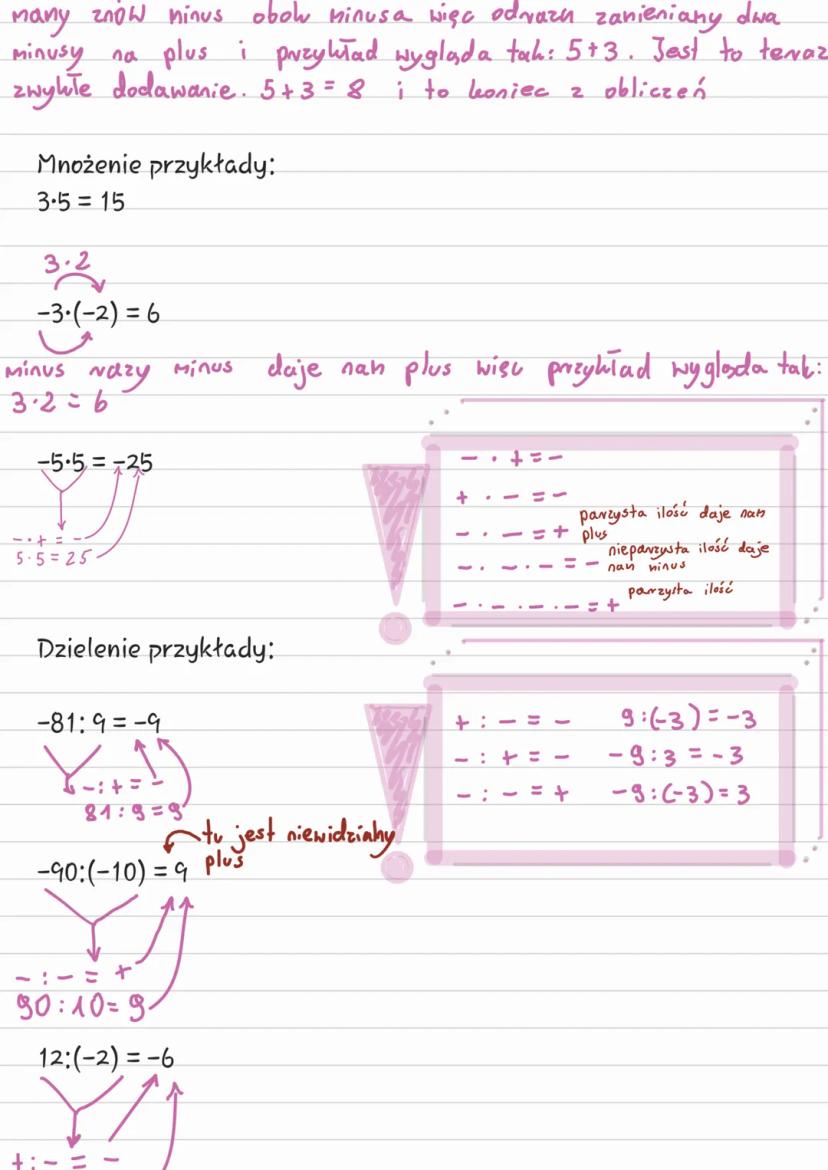 mamy znów minus obok minusa więc odrazu zamieniamy dwa
minusy na plus i przykład wygląda tak: 5+3. Jest to teraz
zwykłe dodawanie. 5+3=8 i to koniec z obliczeń
Mnożenie przykłady:
3·5 = 15
3·2
-3·(-2) = 6
minus razy minus daje nam plus więc przykład wygląda tak:
3·2 = 6
-5·5 = -25
- · + = -
5·5 = 25
- · + = -
+ · - = -
- · - = + parzysta ilość daje nam
plus
- · - · - = - nieparzysta ilość daje
nam minus
- · - · - · - = + parzysta ilość
Dzielenie przykłady:
-81: 9 = -9
- : + = -
81 : 9 = 9
+ : - = - 9:(-3) = -3
- : + = - -9:3 = -3
- : - = + -9:(-3) = 3
tu jest niewidzialny
plus
-90:(-10) = 9
- : - = +
90 : 10 = 9
12:(-2) = -6
+ : - = -